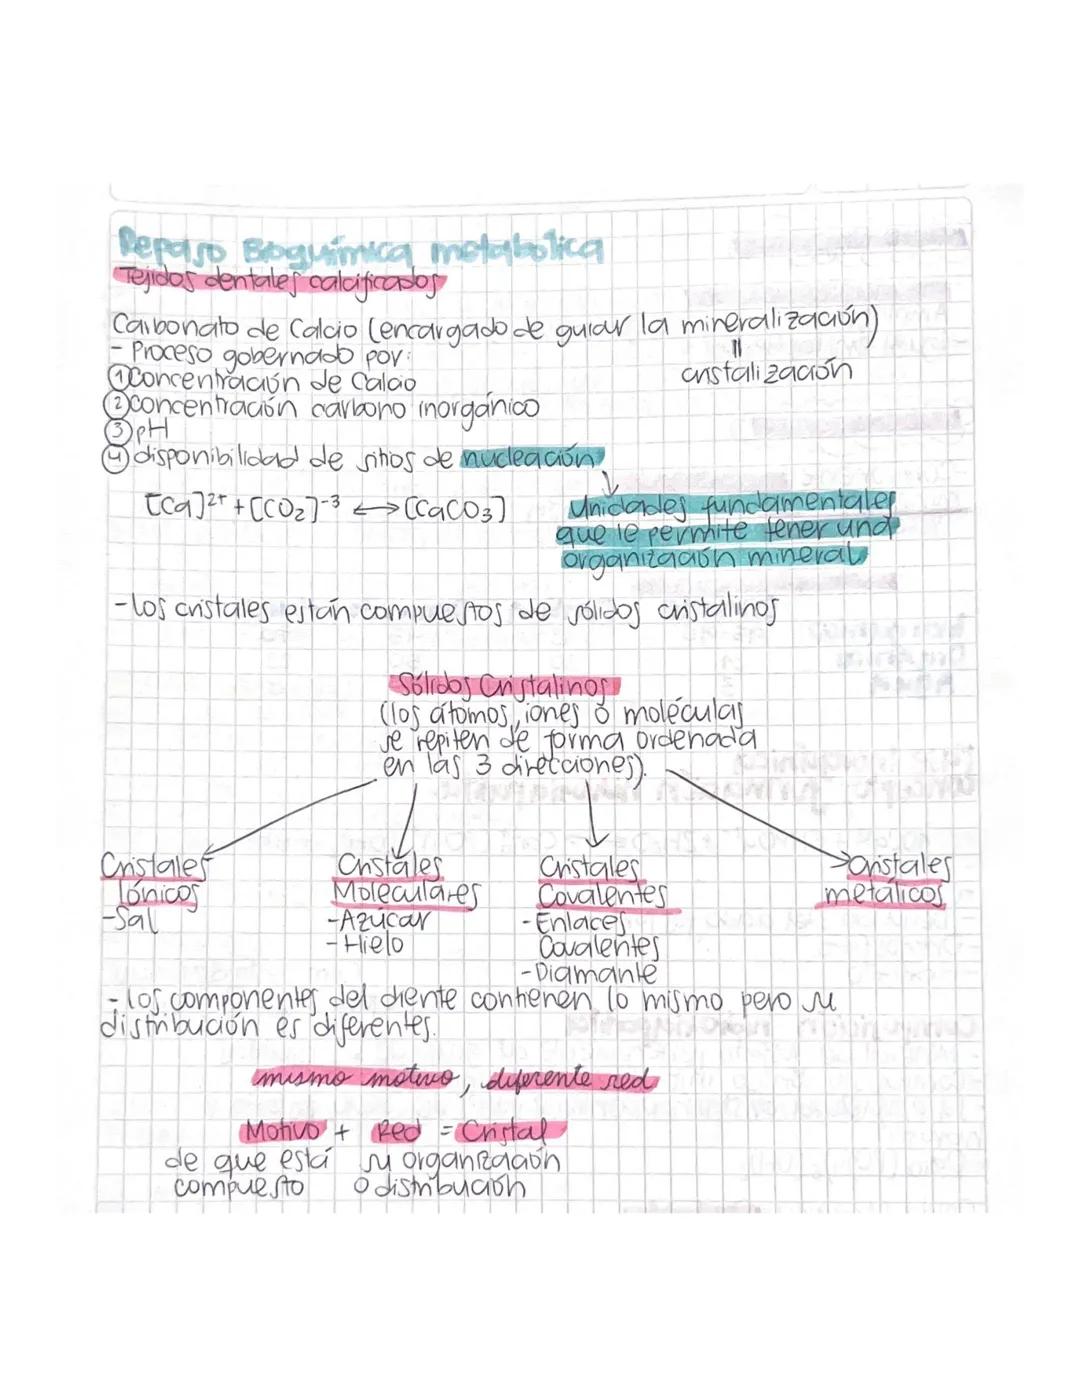 Repaso Bioquímica metabolica
Tejidos dentales calcificados
Carbonato de Calcio (encargado de guiar la mineralización)
- Proceso gobernado por:
||
cristalización
① Concentración de Calcio
② concentración carbono inorgánico
③ pH
④ disponibilidad de sitios de nucleación
[Ca]²⁺ + [CO₂]⁻³ ⟷ [CaCO₃]
Unidades fundamentales
que le permite tener una
organización mineral
- Los cristales están compuestos de sólidos cristalinos
Sólidos Cristalinos
(los átomos, iones o moléculas
se repiten de forma ordenada
en las 3 direcciones).
Cristales
Iónicos
- Sal
Cristales
Moleculares
- Azúcar
- Hielo
Cristales
Covalentes
- Enlaces
Covalentes
- Diamante
Cristales
metálicos
- Los componentes del diente contienen lo mismo pero su
distribución es diferentes.
mismo motivo, diferente red
Motivo + Red = Cristal
de que está
compuesto
su organización
o distribución